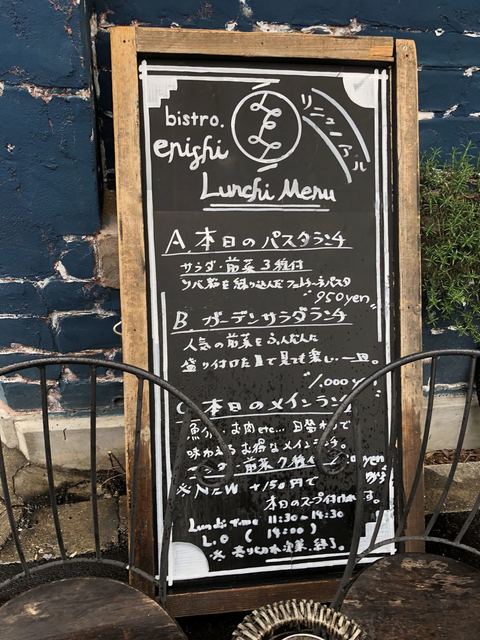 bistro.
enishi
リニューアル
Lunchi Menu
A 本日のパスタランチ
サラダ・前菜3種付
ソバ粉を練り込んだフェットチーネパスタ
950yen
B ガーデンサラダランチ
人気の前菜をふんだんに
盛り付けた皿で見ても楽しい一皿。
1,000y
C 本日のメインランチ
魚介・お肉etc... 日替わりで
味わえるお得なメインランチ。
前菜7種
yen
※NEW +150円で
本日のスープ付
す。
Lunchi time 11:30~14:30
L.O ( 14:00 )
※売り切れ次第、終了。